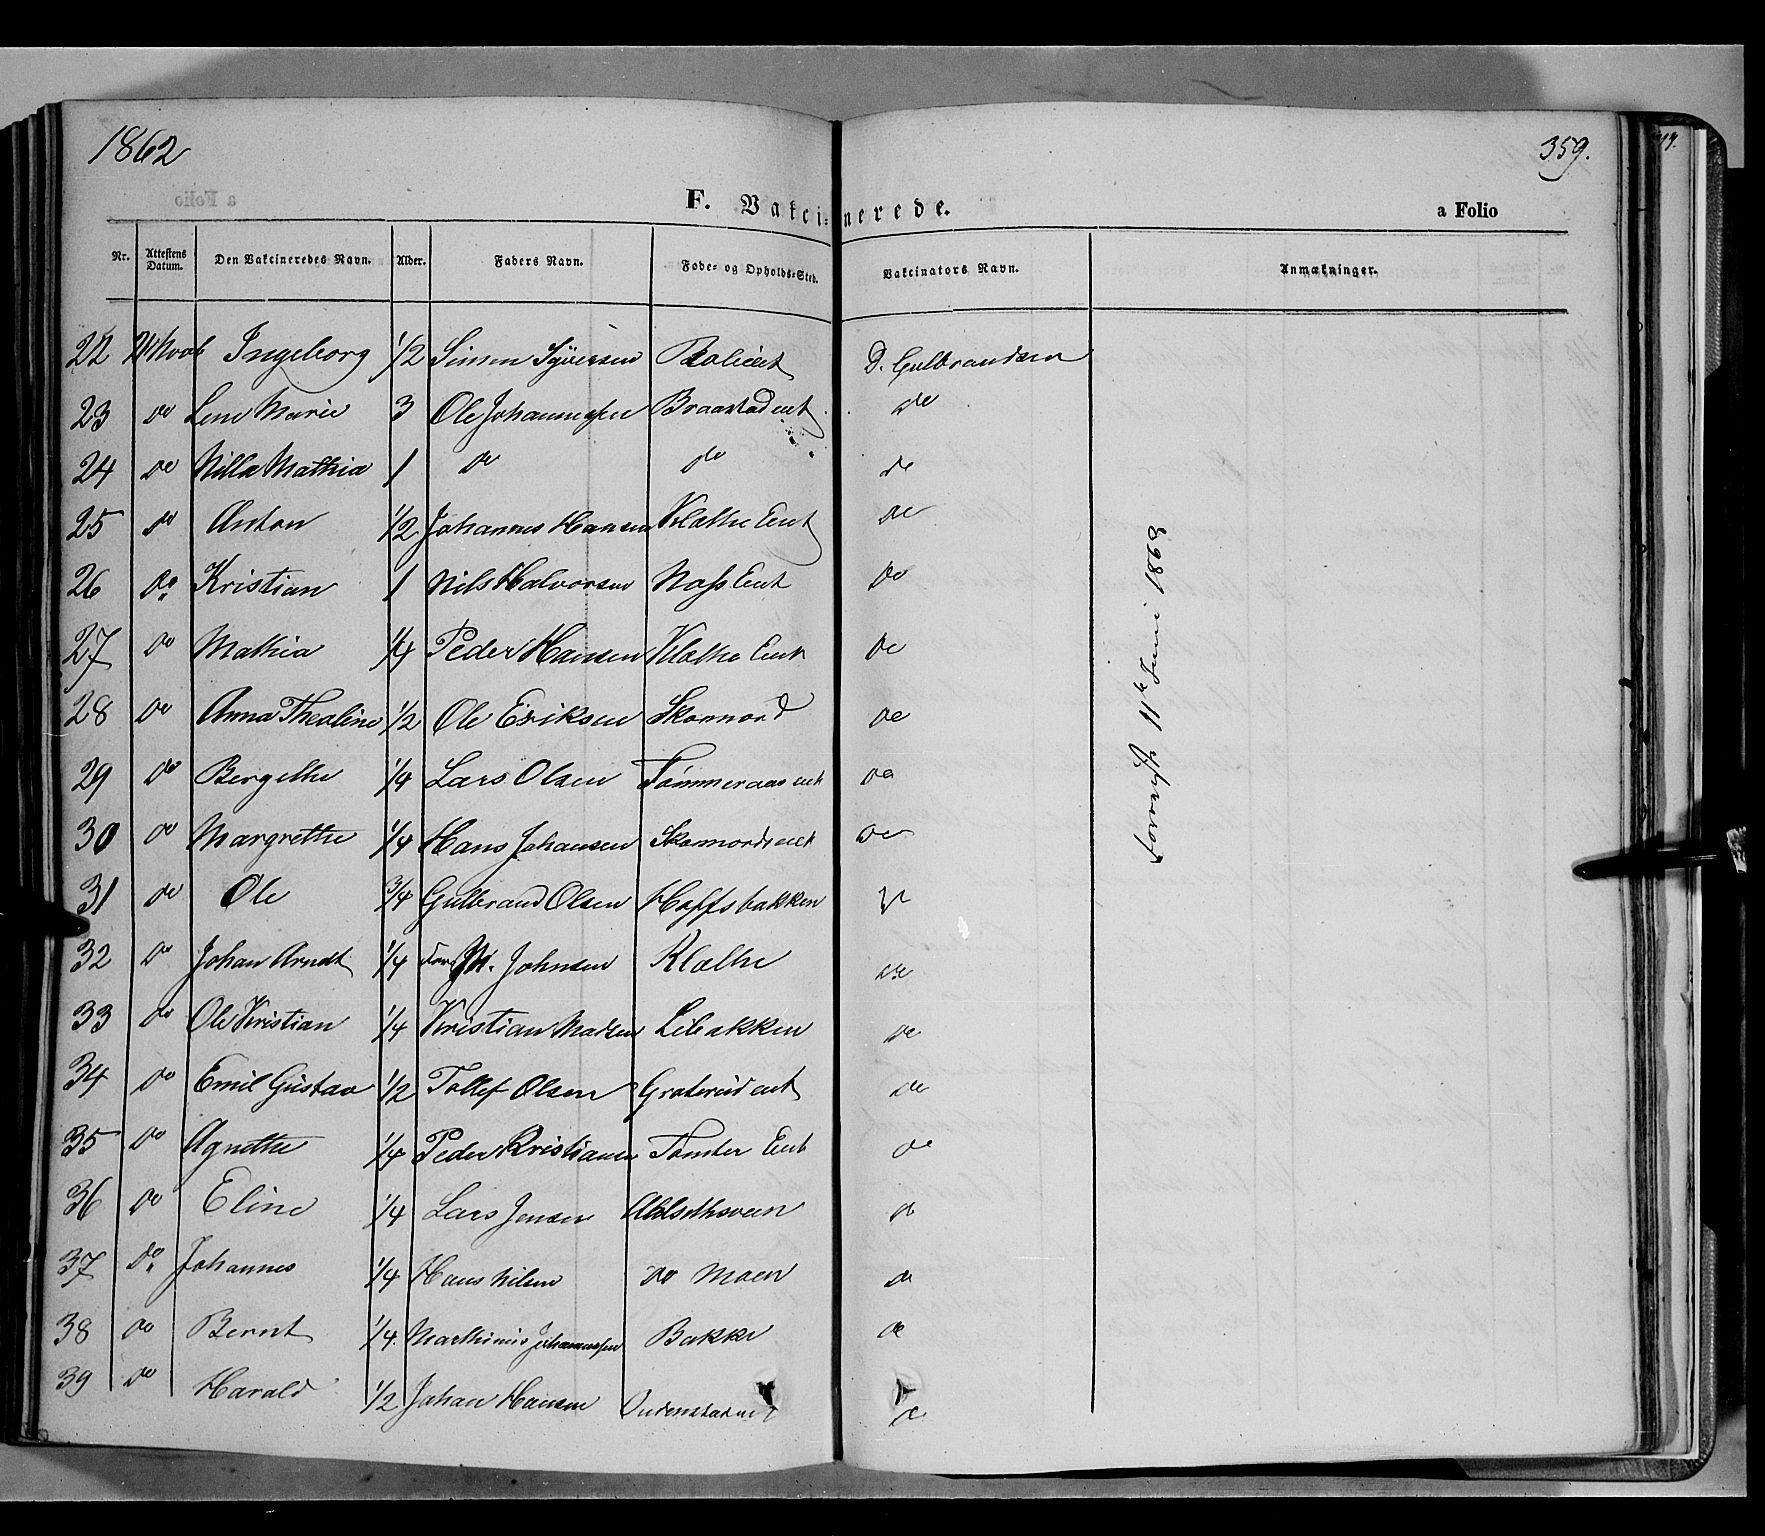 1862
359.
F. Vakcinerede.
a Folio
Nr. Attestens Datum. Den Vakcineredes Navn. Alder. Faders Navn. Føde- og Opholds-Sted. Vakcinators Navn. Anmærkninger.
22 Ingeborg 1/2 Simen Syversen D. Gulbrandsen
23 do Lene Marie 3 Ole Johannessen Braastad eiet do
24 do Mathia 1 do do do
25 do Anton 1/2 Johannes Hansen Klæthe Eiet do
26 do Kristian 1 Nils Halvorsen Næss Eiet do
27 do Mathia 1/4 Peder Hansen Klæthe Eiet do
28 do Anna Thealine 1/2 Ole Eriksen Skonnord do
29 do Bergethe 1/4 Lars Olsen Tømmeraas eiet do
30 do Margrethe 1/4 Hans Johansen Skonnords eiet do
31 do Ole 3/4 Gulbrand Olsen Hoffsbakken do
32 do Johan Arndt 1/4 Johnsen Klæthe do
33 do Ole Kristian 1/4 Kristian Madsen Libakken do
34 do Emil Gustav 1/2 Tollef Olsen eiet do
35 do Agnethe 1/4 Peder Kristiansen Tømter Eiet do
36 do Eline 1/4 Lars Jensen do
37 do Johannes 1/4 Hans Nilsen do Moen do
38 do Bernt 1/4. Marthinus Johannessen Bakke do
39 do Harald 1/2 Johan Hansen do
11te Juni 1863